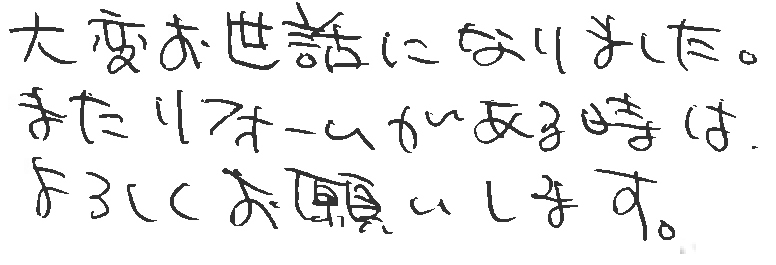 大変お世話になりました。
またリフォームがある時は、
よろしくお願いします。